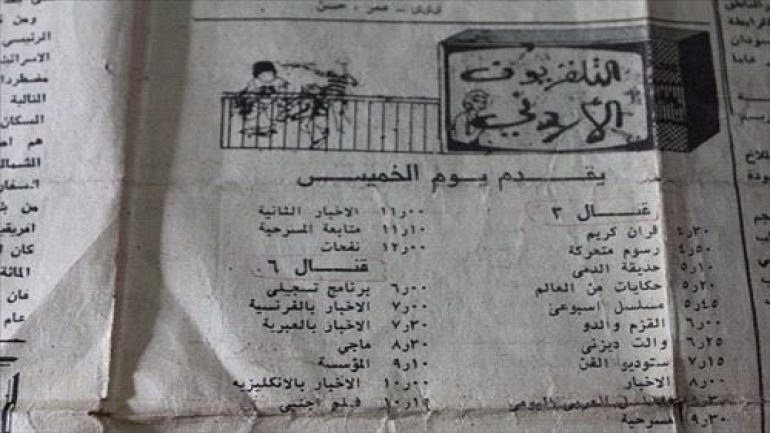 فوزي - عمر، حسن
التلفزيون
الأردني
يقدم يوم الخميس
قنال ٣
٤ر٣٠ قرآن كريم
٤ر٥٠ رسوم متحركة
٥ر١٠ حديقة الدمى
٥ر٢٠ حكايات من العالم
٥ر٤٥ مسلسل اسبوعي
٦ر٠٠ القزم والدو
٦ر٢٥ والت ديزني
٧ر١٥ ستوديو الفن
٨ر٠٠ الاخبار
٨ر٣٠ العربي اليومي
٩ر٣٠ مسرحية
١١ر٠٠ الاخبار الثانية
١١ر١٠ متابعة المسرحية
١٢ر٠٠ نفحات
قنال ٦
٦ر٠٠ برنامج تسجيلي
٧ر٠٠ الاخبار بالفرنسية
٧ر٣٠ الاخبار بالعبرية
٨ر٣٠ ماجي
٩ر١٠ المؤسسة
١٠ر٠٠ الاخبار بالانكليزيه
١٠ر١٥ فيلم اجنبي
والناطق
الرابطة
سودان
عاما
ومن
الرئيسي
مضطردا
التالية
السكان
الشمال
من
افريقي
كان
المائة
عام